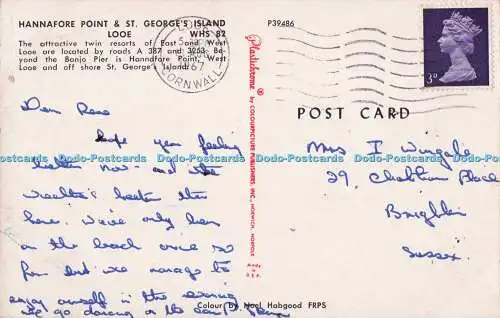 HANNAFORE POINT & ST. GEORGE'S ISLAND
LOOE WHS 82
The attractive twin resorts of East and West
Looe are located by roads A 387 and 3253. Be-
yond the Banjo Pier is Hannafore Point, West
Looe and off shore St. George's Island.
P39486
67
CORNWALL
3D
Plastichrome ®
by COLOURPICTURE PUBLISHERS, INC., NORWICH, NORFOLK
MADE IN U.S.A.
POST CARD
Dear
hope your feeling
better now and the
weather's better than
here. We've only been
on the beach once so
far but we manage to
enjoy ourself in the evening
we go dancing on the
Mrs I Wingate
29, Place
Brighton
Sussex.
Colour by Noel Habgood FRPS
Dodo-Postcards Dodo-Postcards Dodo-Postcards Dodo-Postcards Dodo-Postcards